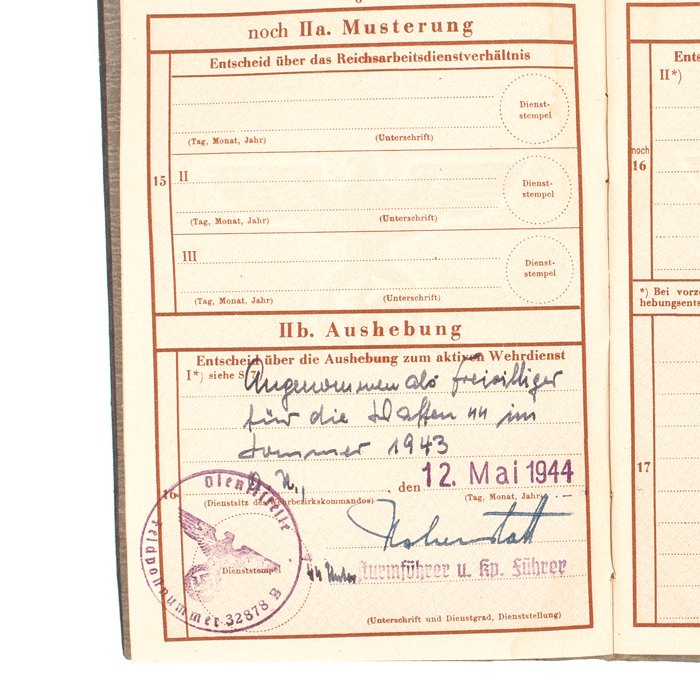 noch IIa. Musterung
Entscheid über das Reichsarbeitsdienstverhältnis
Dienst-
stempel
(Tag, Monat, Jahr) (Unterschrift)
15
II
Dienst-
stempel
(Tag, Monat, Jahr) (Unterschrift)
III
Dienst-
stempel
(Tag, Monat, Jahr) (Unterschrift)
IIb. Aushebung
Entscheid über die Aushebung zum aktiven Wehrdienst
I*) siehe S.
Angenommen als Freiwilliger
für die Waffen SS im
Sommer 1943
16
O. U., den 12. Mai 1944
(Dienstsitz des Wehrbezirkskommandos) (Tag, Monat, Jahr)
Dienststelle
Feldpostnummer 32878 B
Dienststempel
SS Untersturmführer u. Kp. Führer
(Unterschrift und Dienstgrad, Dienststellung)
II*)
noch
16
*) Bei
17